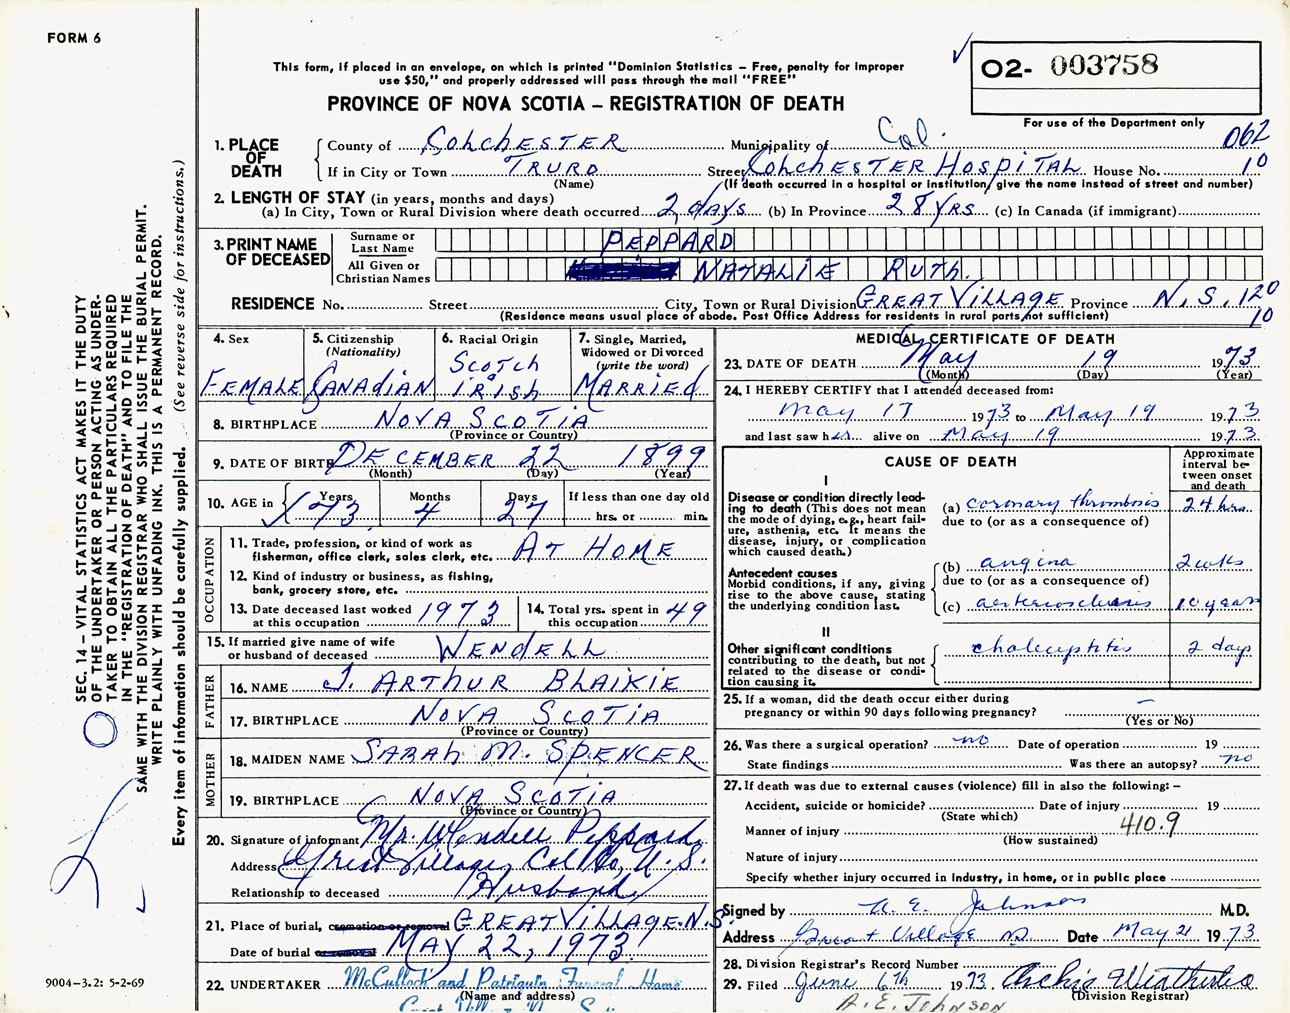 FORM 6
This form, if placed in an envelope, on which is printed "Dominion Statistics – Free, penalty for improper
use $50," and properly addressed will pass through the mail "FREE"
O2- 003758
For use of the Department only
PROVINCE OF NOVA SCOTIA – REGISTRATION OF DEATH
1. PLACE OF DEATH
County of COLCHESTER Municipality of Col. 062
If in City or Town TRURO Street COLCHESTER HOSPITAL House No. 10
(Name) (If death occurred in a hospital or institution, give the name instead of street and number)
2. LENGTH OF STAY (in years, months and days)
(a) In City, Town or Rural Division where death occurred 2 days (b) In Province 28 YRS (c) In Canada (if immigrant)
3. PRINT NAME OF DECEASED
Surname or Last Name PEPPARD
All Given or Christian Names NATALIE RUTH.
RESIDENCE No. Street City, Town or Rural Division GREAT VILLAGE Province N.S. 120
(Residence means usual place of abode. Post Office Address for residents in rural parts not sufficient) 10
4. Sex
FEMALE
5. Citizenship
(Nationality)
CANADIAN
6. Racial Origin
SCOTCH
IRISH
7. Single, Married,
Widowed or Divorced
(write the word)
MARRIED
8. BIRTHPLACE NOVA SCOTIA
(Province or Country)
9. DATE OF BIRTH DECEMBER 22 1899
(Month) (Day) (Year)
10. AGE in Years Months Days If less than one day old
73 4 27 hrs. or min.
OCCUPATION
11. Trade, profession, or kind of work as
fisherman, office clerk, sales clerk, etc. AT HOME
12. Kind of industry or business, as fishing,
bank, grocery store, etc.
13. Date deceased last worked
at this occupation 1973
14. Total yrs. spent in
this occupation 49
15. If married give name of wife
or husband of deceased WENDELL
FATHER
16. NAME J. ARTHUR BLAIKIE
17. BIRTHPLACE NOVA SCOTIA
(Province or Country)
MOTHER
18. MAIDEN NAME SARAH M. SPENCER
19. BIRTHPLACE NOVA SCOTIA
(Province or Country)
20. Signature of informant Mr. Wendell Peppard
Address Great Village, Col Co, N.S.
Relationship to deceased Husband
21. Place of burial, cremation or removal GREAT VILLAGE N.S.
Date of burial or removal MAY 22, 1973
22. UNDERTAKER McCulloch and Patriquin Funeral Home
(Name and address)
MEDICAL CERTIFICATE OF DEATH
23. DATE OF DEATH May 19 1973
(Month) (Day) (Year)
24. I HEREBY CERTIFY that I attended deceased from:
May 17 1973 to May 19 1973
and last saw her alive on May 19 1973
CAUSE OF DEATH
Approximate
interval be-
tween onset
and death
I
Disease or condition directly lead-
ing to death (This does not mean
the mode of dying, e.g., heart fail-
ure, asthenia, etc. It means the
disease, injury, or complication
which caused death.)
(a) coronary thrombosis 24 hrs
due to (or as a consequence of)
Antecedent causes
Morbid conditions, if any, giving
rise to the above cause, stating
the underlying condition last.
(b) angina 2 wks
due to (or as a consequence of)
(c) arteriosclerosis 10 years
II
Other significant conditions
contributing to the death, but not
related to the disease or condi-
tion causing it.
2 days
25. If a woman, did the death occur either during
pregnancy or within 90 days following pregnancy? –
(Yes or No)
26. Was there a surgical operation? no Date of operation 19
State findings Was there an autopsy? no
27. If death was due to external causes (violence) fill in also the following: –
Accident, suicide or homicide? Date of injury 19
(State which)
Manner of injury 410.9
(How sustained)
Nature of injury
Specify whether injury occurred in industry, in home, or in public place
Signed by A. E. Johnson M.D.
Address Great Village NS Date May 21 1973
28. Division Registrar's Record Number
29. Filed June 6th 1973
(Division Registrar)
A. E. JOHNSON
SEC. 14 – VITAL STATISTICS ACT MAKES IT THE DUTY
OF THE UNDERTAKER OR PERSON ACTING AS UNDER-
TAKER TO OBTAIN ALL THE PARTICULARS REQUIRED
IN THE "REGISTRATION OF DEATH" AND TO FILE THE
SAME WITH THE DIVISION REGISTRAR WHO SHALL ISSUE THE BURIAL PERMIT.
WRITE PLAINLY WITH UNFADING INK. THIS IS A PERMANENT RECORD.
Every item of information should be carefully supplied. (See reverse side for instructions.)
9004–3.2: 5-2-69